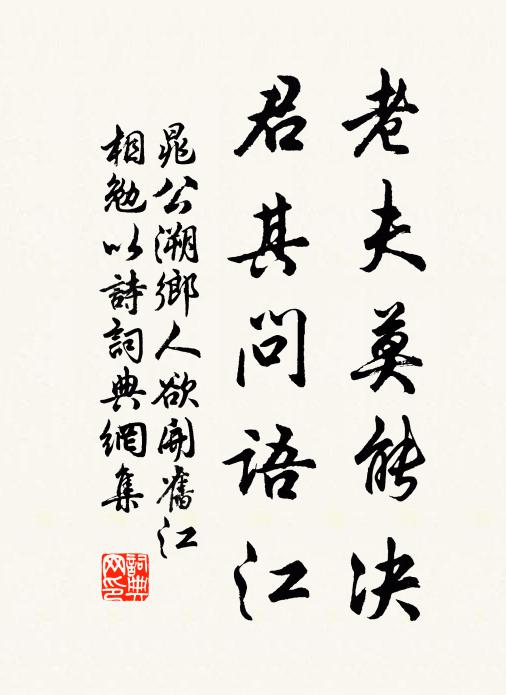 老夫莫能决
君其问語江
晁公溯鄉人欲開舊江
相勉以詩詞典網集
詞典网印